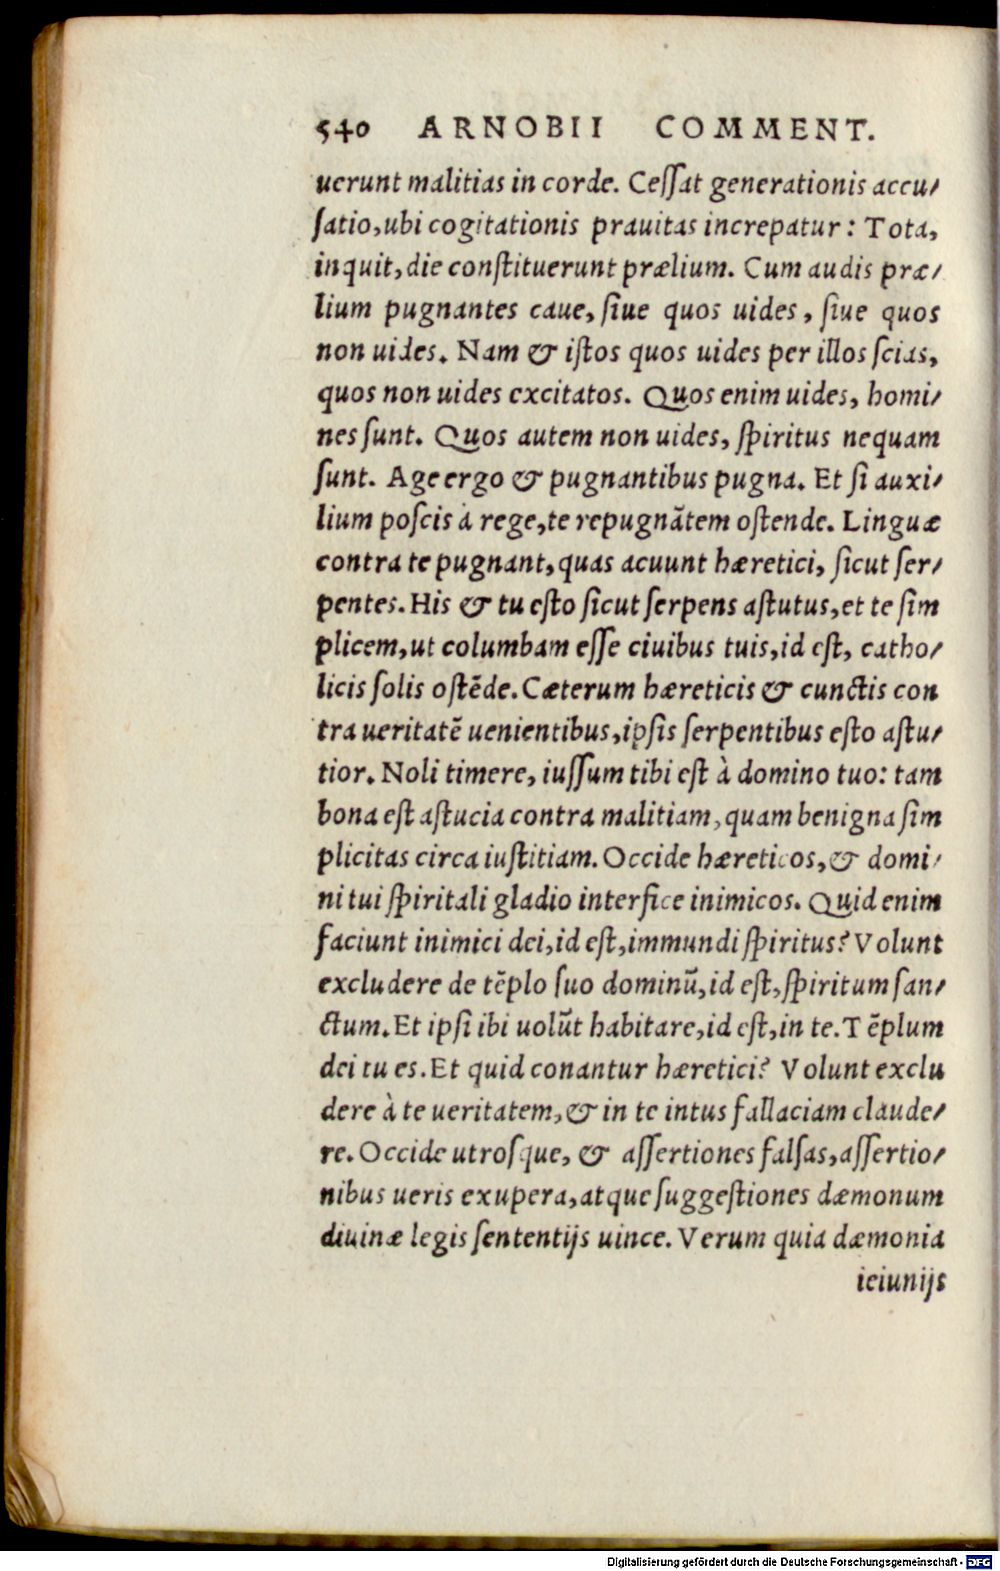 540 ARNOBII COMMENT.
uerunt malitias in corde. Ceſſat generationis accu/
ſatio, ubi cogitationis prauitas increpatur: Tota,
inquit, die conſtituerunt prælium. Cum audis præ/
lium pugnantes caue, ſiue quos uides, ſiue quos
non uides. Nam & iſtos quos uides per illos ſcias,
quos non uides excitatos. Quos enim uides, homi/
nes ſunt. Quos autem non uides, ſpiritus nequam
ſunt. Age ergo & pugnantibus pugna. Et ſi auxi/
lium poſcis à rege, te repugnãtem oſtende. Linguæ
contra te pugnant, quas acuunt hæretici, ſicut ſer/
pentes. His & tu eſto ſicut ſerpens aſtutus, et te ſim
plicem, ut columbam eſſe ciuibus tuis, id eſt, catho/
licis ſolis oſtẽde. Cæterum hæreticis & cunctis con
tra ueritatẽ uenientibus, ipſis ſerpentibus eſto aſtu/
tior. Noli timere, iuſſum tibi eſt à domino tuo: tam
bona eſt aſtucia contra malitiam, quam benigna ſim
plicitas circa iuſtitiam. Occide hæreticos, & domi/
ni tui ſpiritali gladio interfice inimicos. Quid enim
faciunt inimici dei, id eſt, immundi ſpiritus? Volunt
excludere de tẽplo ſuo dominũ, id eſt, ſpiritum ſan/
ctum. Et ipſi ibi uolũt habitare, id eſt, in te. Tẽplum
dei tu es. Et quid conantur hæretici? Volunt exclu
dere à te ueritatem, & in te intus fallaciam claude/
re. Occide utroſque, & aſſertiones falſas, aſſertio/
nibus ueris exupera, atque ſuggeſtiones dæmonum
diuinæ legis ſententijs uince. Verum quia dæmonia
ieiunijs
Digitalisierung gefördert durch die Deutsche Forschungsgemeinschaft - DFG